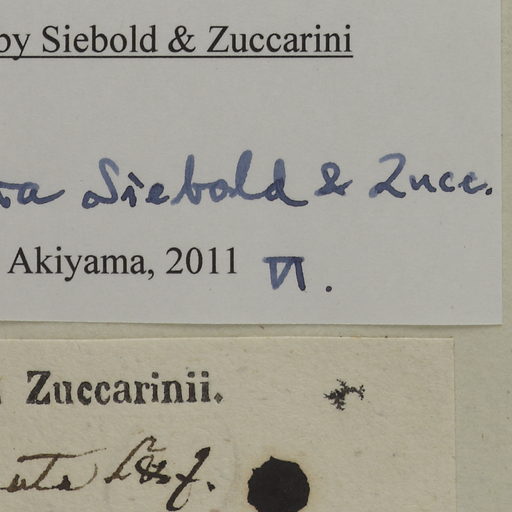 by Siebold & Zuccarini
Siebold & Zucc.
Akiyama, 2011 VI.
Zuccarinii.